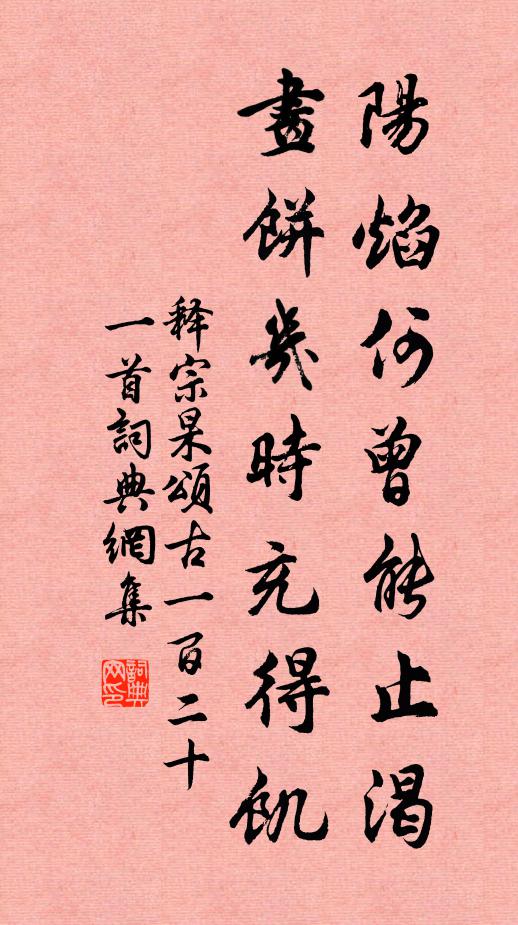 陽焰何曾能止渴
畫餅幾時充得飢
释宗杲頌古一百二十
一首詞典網集
詞典
网印